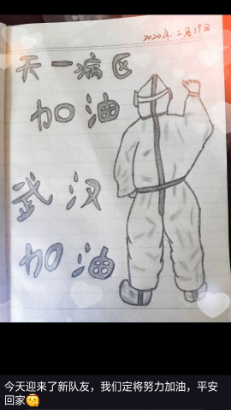 2020年2月19日
天一病区
加油
武汉
加油
今天迎来了新队友，我们定将努力加油，平安
回家🤗